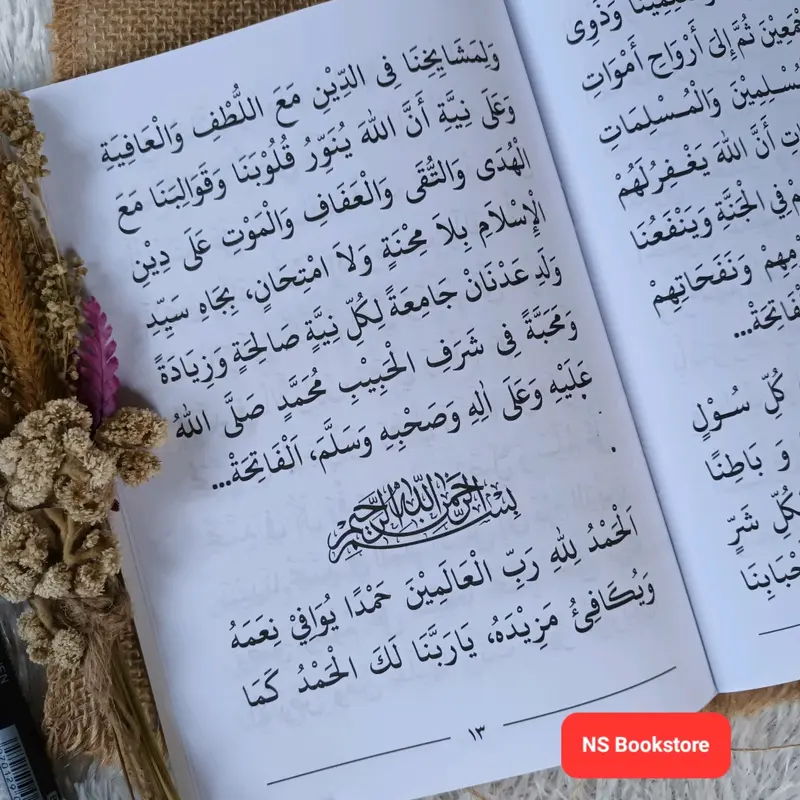 وَلِمَشَايِخِنَا فِى الدِّيْنِ مَعَ اللُّطْفِ وَالْعَافِيَةِ
وَعَلَى نِيَّةِ أَنَّ اللهَ يُنَوِّرُ قُلُوْبَنَا وَقَوَالِبَنَا مَعَ
الْهُدَى وَالتُّقَى وَالْعَفَافِ وَالْمَوْتِ عَلَى دِيْنِ
الْإِسْلَامِ بِلَا مِحْنَةٍ وَلَا امْتِحَانٍ، بِجَاهِ سَيِّدِ
وَلَدِ عَدْنَانْ جَامِعَةً لِكُلِّ نِيَّةٍ صَالِحَةٍ وَزِيَادَةً
وَمَحَبَّةً فِى شَرَفِ الْحَبِيْبِ مُحَمَّدٍ صَلَّى اللهُ
عَلَيْهِ وَعَلَى اٰلِهِ وَصَحْبِهِ وَسَلَّمَ، اَلْفَاتِحَةْ...
بِسْمِ اللهِ الرَّحْمٰنِ الرَّحِيْمِ
اَلْحَمْدُ لِلهِ رَبِّ الْعَالَمِيْنَ حَمْدًا يُوَافِيْ نِعَمَهُ
وَيُكَافِئُ مَزِيْدَهُ، يَارَبَّنَا لَكَ الْحَمْدُ كَمَا
١٣
وَذَوِى
ثُمَّ إِلىَ أَرْوَاحِ أَمْوَاتِ
وَالْمُسْلِمَاتِ
أَنَّ اللهَ يَغْفِرُ لَهُمْ
فِي الْجَنَّةِ وَيَنْفَعُنَا
وَنَفَحَاتِهِمْ
كُلِّ سُوْلٍ
وَ بَاطِنًا
شَرٍّ
NS Bookstore